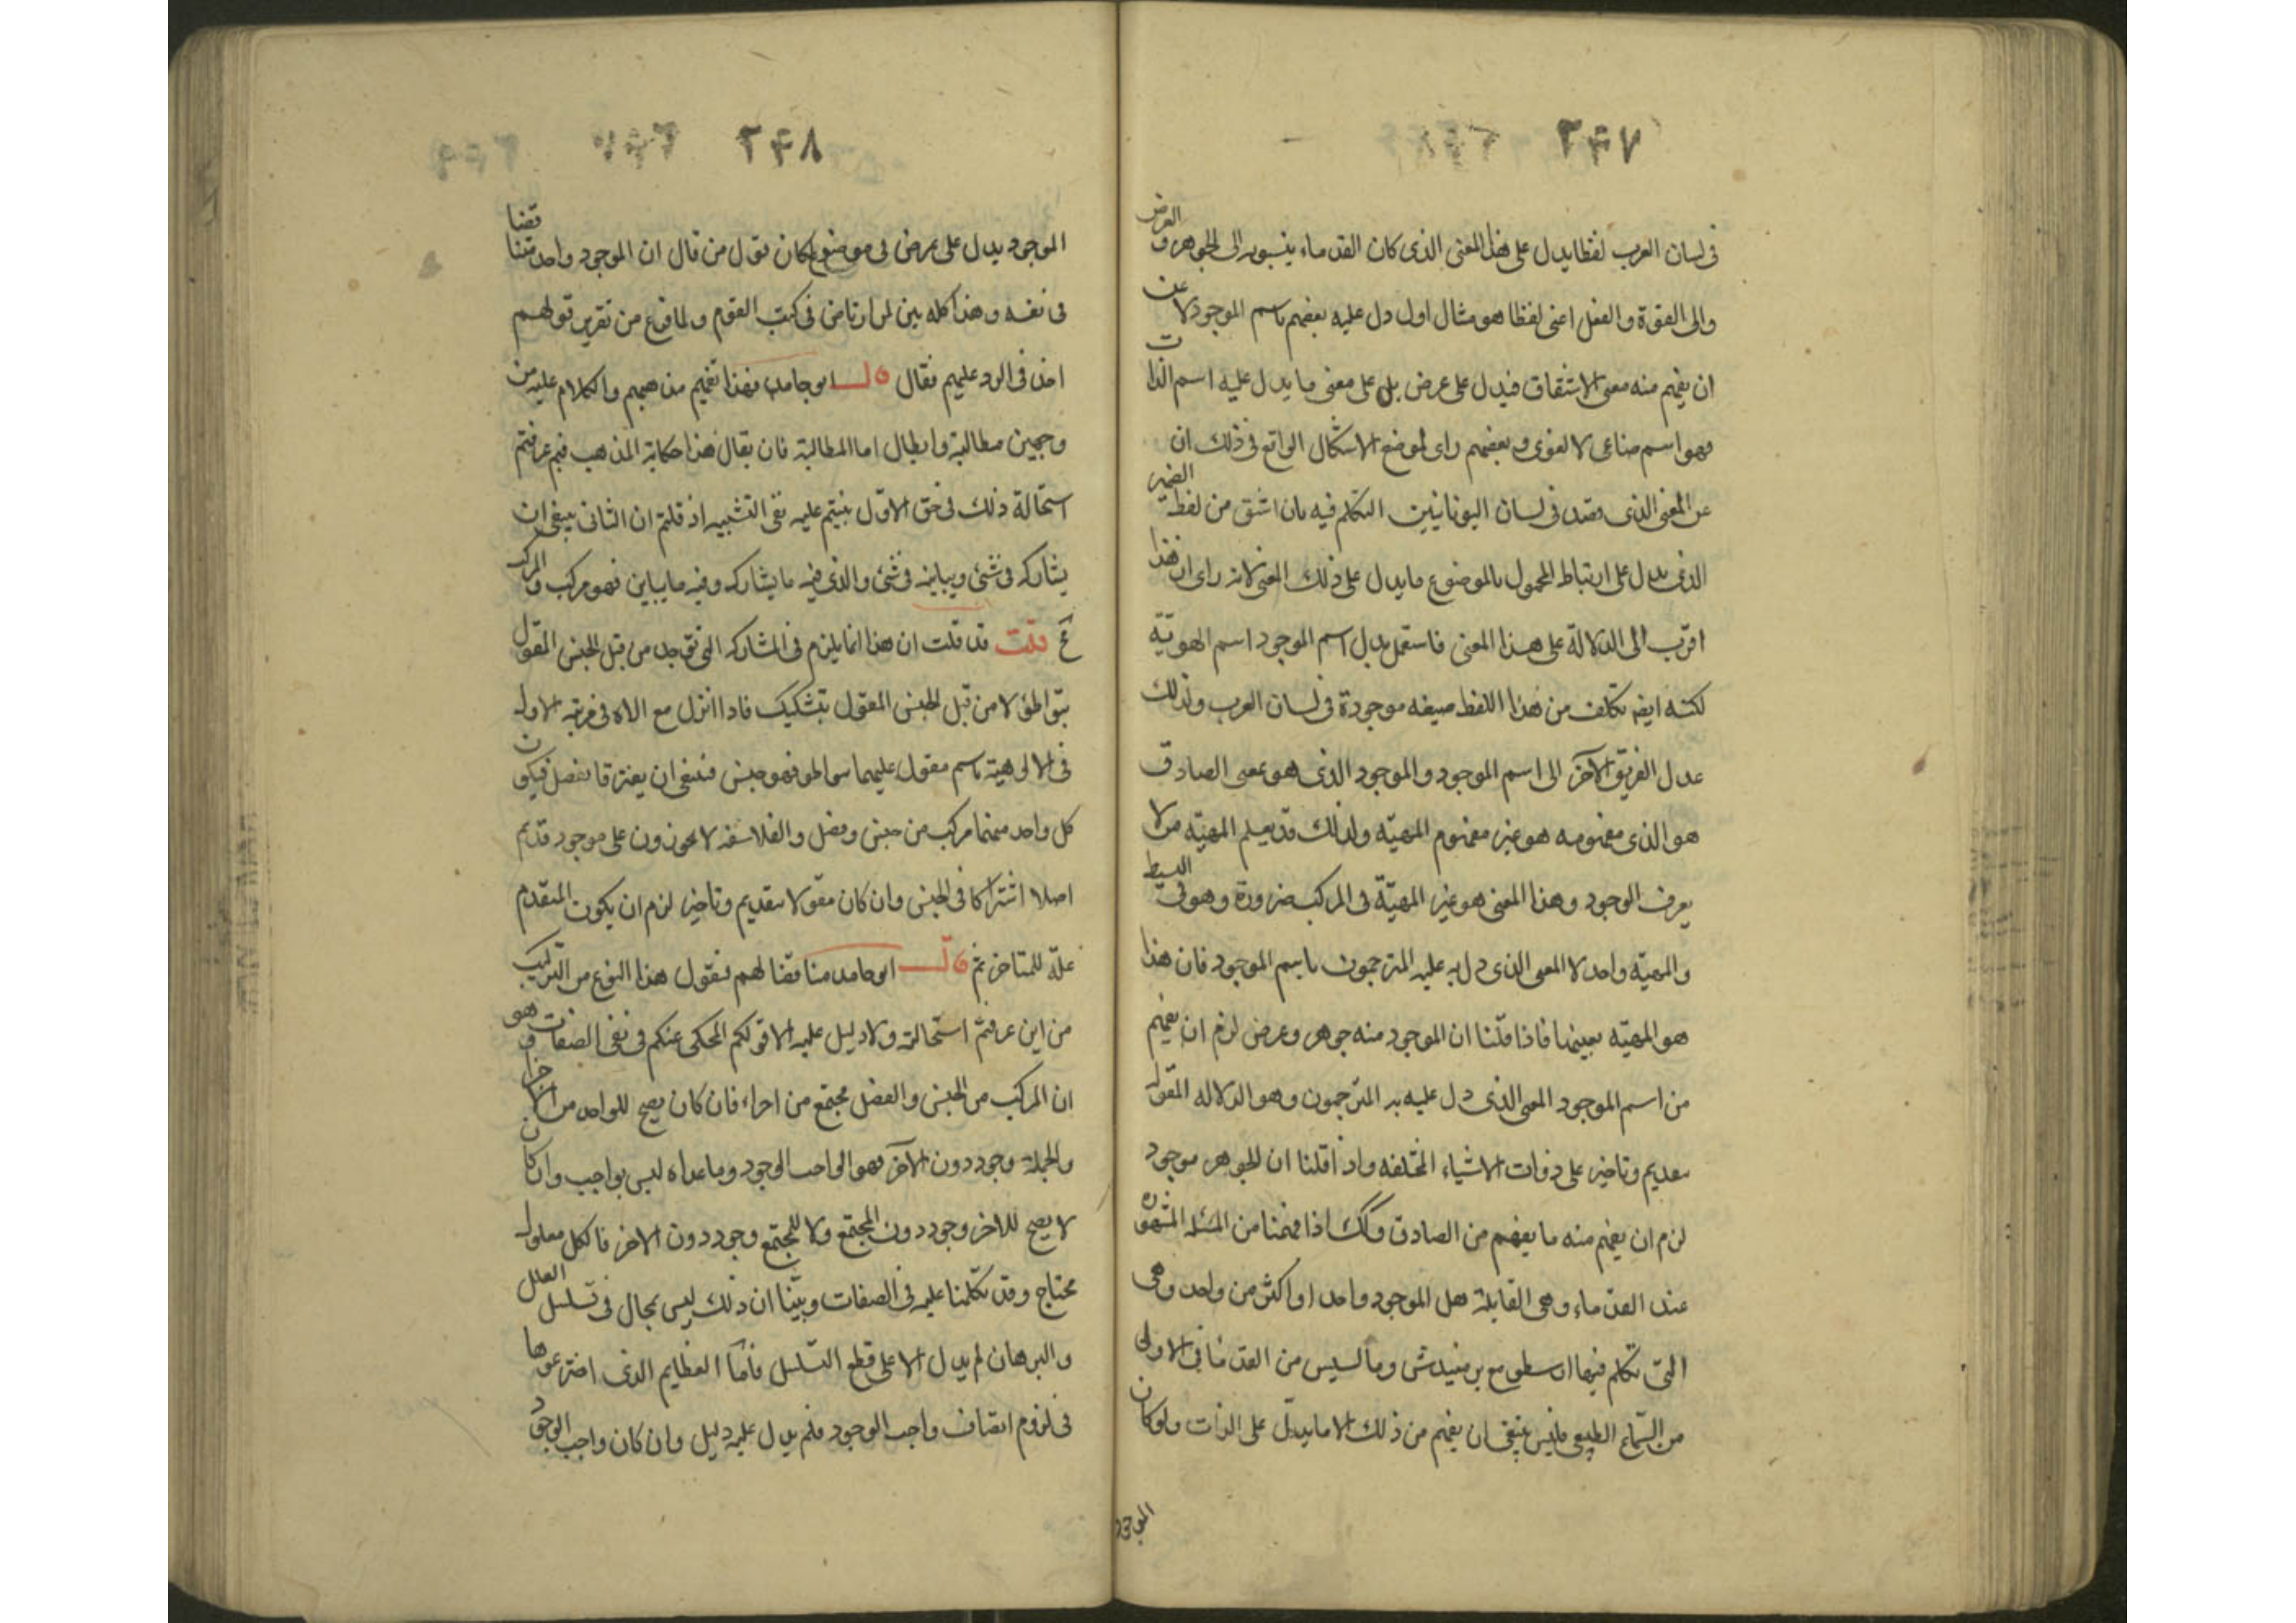 ٢٤٧
فى لسان العرب لفظا يدل على هذا المعنى الذى كان القدماء ينسبونه الى الجوهر و العرض
والى القوة والفعل اعنى لفظا هو مثال اول دل عليه بعضهم باسم الموجود لا عن
ان يفهم منه معنى الاشتقاق فيدل على عرض بل على معنى ما يدل عليه اسم الذات
فهو اسم صناعى لا لغوى و بعضهم راى لموضع الاشكال الواقع فى ذلك ان
عن المعنى الذى قصد فى لسان اليونانيين التكلم فيه بان اشتق من لفظ الضمير
الذى يدل على ارتباط المحمول بالموضوع ما يدل على ذلك المعنى لانه راى ان هذا
اقرب الى الدلالة على هذا المعنى فاستعمل بدل اسم الموجود اسم الهوية
لكنه ايض تكلف من هذا اللفظ صيغه موجودة فى لسان العرب ولذلك
عدل الفريق الآخر الى اسم الموجود والموجود الذى هو بمعنى الصادق
هو الذى مفهومه هو غير مفهوم المهيّه ولذلك قد يعلم المهيّه من لا
يعرف الوجود وهذا المعنى هو غير المهيّة فى المركب ضرورة وهو فى البسيط
والمهيّه واحد لا المعنى الذى دل به عليه المترجمون باسم الموجود فان هذا
هو المهيّه بعينها فاذا قلنا ان الموجود منه جوهر وعرض لزم ان يفهم
من اسم الموجود المعنى الذى دل عليه به المترجمون وهو الدلاله المقوله
بتقديم وتاخير على ذوات الاشياء المختلفه واذا قلنا ان الجوهر موجود
لزم ان يفهم منه ما يفهم من الصادق وكك اذا فهمنا من المسئله المشهوره
عند القدماء وهى القايلة هل الموجود واحد او اكثر من واحد وهى
التى تكلم فيها ارسطو مع برمنيدش ومالسيس من القدما فى الاولى
من السّماع الطبيعى فليس ينبغى ان يفهم من ذلك الا ما يدلّ على الذات ولو كان
الموجود
٢٤٨
الموجود يدل على عرض فى موضوع لكان قول من قال ان الموجود واحد متناقضا
فى نفسه وهذا كله بين لمن ارتاض فى كتب القوم ولما فرغ من تقرير قولهم
اخذ فى الرد عليهم فقال قال ابو حامد فهذا تفهيم مذهبهم والكلام عليه من
وجهين مطالبة وابطال اما المطالبة فان يقال هذا حكاية المذهب فبم عرفتم
استحالة ذلك فى حق الاوّل بنيتم عليه نفى التشبيه اذ قلتم ان الثانى ينبغى ان
يشاركه فى شئ ويباينه فى شئ والذى فيه ما يشاركه وفيه ما يباين فهو مركب والمركب
مح قلت قد قلت ان هذا انما يلزم فى المشاركه التى توجد من قبل الجنس المقول
بتواطؤ لا من قبل الجنس المقول بتشكيك فاذا انزل مع الاه فى مرتبه الاوله
فى الالوهية باسم مقول عليهما بتواطؤ فهو جنس فينبغى ان يفترقا بفصل فيكون
كل واحد منهما مركب من جنس وفصل والفلاسفه لا يجوزون على موجود قديم
اصلا اشتراكا فى الجنس وان كان مقولا بتقديم وتاخير لزم ان يكون المتقدم
علّة للمتاخر ثم قال ابو حامد مناقضا لهم فنقول هذا النوع من التركيب
من اين عرفتم استحالته ولا دليل عليه الا قولكم المحكى عنكم فى نفى الصفات وهو
ان المركب من الجنس والفصل مجتمع من اجزاء فان كان يصح للواحد من الاجزا
والجملة وجود دون الآخر فهو الواجب الوجود وما عداه ليس بواجب وان كان
لا يصح للاخر وجود دون المجتمع ولا للمجتمع وجود دون الاخر فالكل معلول
محتاج وقد تكلمنا عليه فى الصفات وبيّنا ان ذلك ليس بمحال فى تسلسل العلل
والبرهان لم يدل الا على قطع التسلسل فامّا العظايم الذى اخترعوها
فى لزوم اتصاف واجب الوجود فلم يدل عليه دليل وان كان واجب الوجود